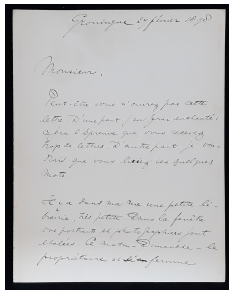 Groningue 24 février 1898
Monsieur,
Peut-être vous n'ouvrez pas cette
lettre. D'une part, j'en serai enchanté
que vous recevez
trop de lettres. D'autre part je
que vous lisez ces quelques
mots.
Il y a dans ma rue une petite li-
brairie, très petite. Dans la fenêtre
vos portraits et photographies sont
étalées. Ce matin Dimanche – le
propriétaire et sa femme